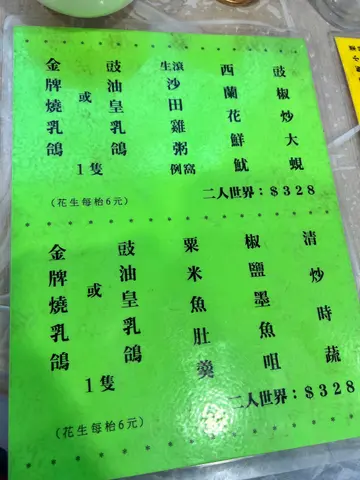 豉椒炒大蜆
西蘭花鮮魷
生滾沙田雞粥
例窩
豉油皇乳鴿
或
金牌燒乳鴿
1隻
二人世界：$328
(花生每枱6元)
清炒時蔬
椒鹽墨魚咀
粟米魚肚羹
豉油皇乳鴿
或
金牌燒乳鴿
1隻
二人世界：$328
(花生每枱6元)